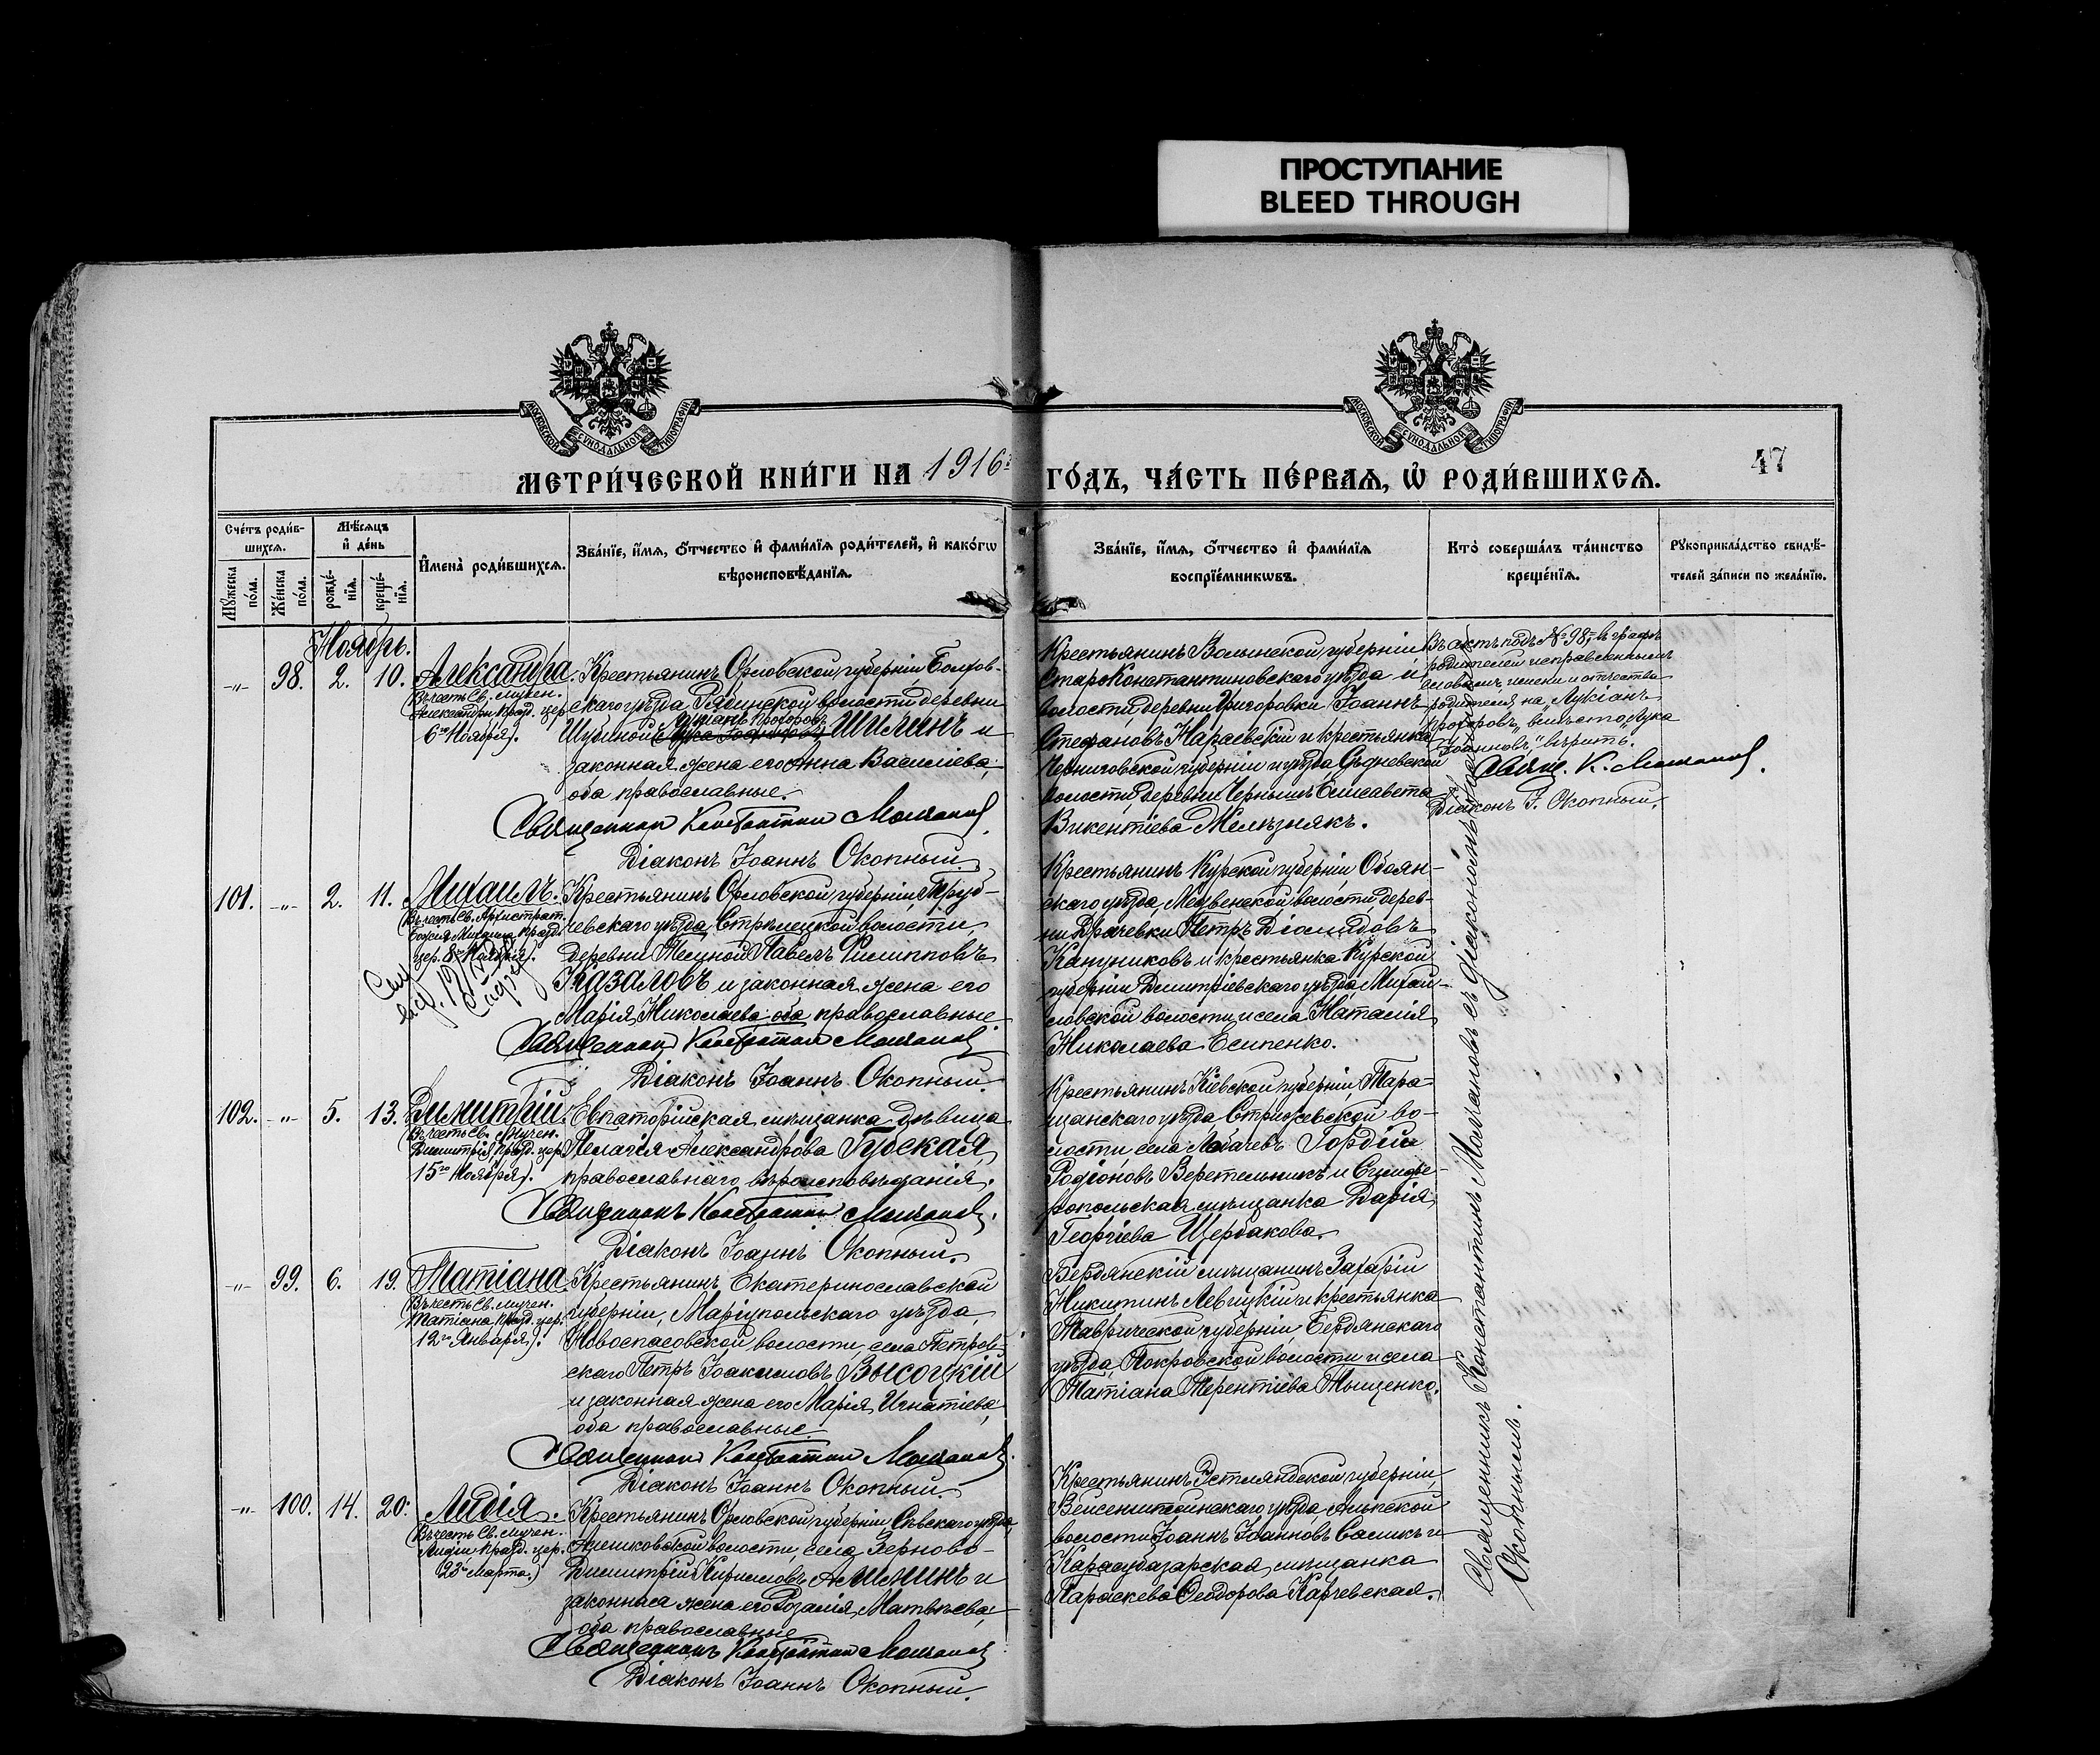 ПРОСТУПАНИЕ
BLEED THROUGH
МОСКОВСКОЙ СѴНОДАЛЬНОЙ ТИПОГРАФІИ
МОСКОВСКОЙ СѴНОДАЛЬНОЙ ТИПОГРАФІИ
МЕТРИ́ЧЕСКОЙ КНИ́ГИ НА 1916 ГО́ДЪ, ЧА́СТЬ ПЕ́РВАѦ, Ѡ РОДИ́ВШИХСѦ.
47
Сче́тъ роди́в-
шихсѧ.
Мꙋ́жеска по́ла.
Же́нска по́ла.
Мѣ́сѧцъ
и҆ де́нь
рожде́-
нїѧ.
креще́-
нїѧ.
И҆мена̀ роди́вшихсѧ.
Зва́нїе, и҆́мѧ, ѻ҆́тчество и҆ фами́лїѧ роди́телей, и҆ како́гѡ
вѣроисповѣ́данїѧ.
Зва́нїе, и҆́мѧ, ѻ҆́тчество и҆ фами́лїѧ
воспрїе́мникѡвъ.
Кто̀ соверша́лъ та́инство
креще́нїѧ.
Рꙋкоприкла́дство свидѣ́-
телей за́писи по жела́нїю.
Ноябрь.
-"- 98. 2. 10. Александра.
Въ честь Св. мучен.
Александры празд. цер.
6го Ноября).
Крестьянинъ Орловской губерніи, Болхов-
скаго уѣзда, волости деревни
Шубиной Лукіанъ Прохоровъ Шилинъ и
законная жена его Анна Василіева,
оба православные.
Священникъ Константинъ Молчановъ
Діаконъ Іоаннъ Окопный
Крестьянинъ Волынской губерніи
Староконстантиновскаго уѣзда и
волости, деревни Григоровки Іоаннъ
Стефановъ Нараевскій и крестьянка
Черниговской губерніи и уѣзда, Сѣдневской
волости, деревни Чернышъ Елисавета
Викентіева Желѣзнякъ.
Въ актѣ подъ № 98, въ графѣ
родителей исправленнымъ
словамъ имени и отчества
родителя на "Лукіанъ
Прохоровъ" вмѣсто "Лука
Іоанновъ" вѣрить.
Свящ. К. Молчановъ.
Діаконъ І. Окопный.
101. -"- 2. 11. Михаилъ.
Въ честь Св. Архистрат.
Божія Михаила празд.
цер. 8го Ноября).
Крестьянинъ Орловской губерніи, Труб-
чевскаго уѣзда, Стрѣлецкой волости,
деревни Павелъ Филипповъ
Казаловъ и законная жена его
Марія Николаева, оба православные
Священникъ Константинъ Молчановъ
Діаконъ Іоаннъ Окопный.
Крестьянинъ Курской губерніи, Обоян-
скаго уѣзда, Медвенской волости, дерев-
ни Драчевки Петръ Діомидовъ
Канунниковъ и крестьянка Курской
губерніи Дмитріевскаго уѣзда, Михай-
ловской волости и села Наталія
Николаева Есипенко.
102. -"- 5. 13. Димитрій.
Въ честь Св. Мучен.
Димитрія празд. цер.
15го Ноября).
Евпаторійская мѣщанка дѣвица
Пелагія Александрова Губская,
православнаго вѣроисповѣданія.
Священникъ Константинъ Молчановъ.
Діаконъ Іоаннъ Окопный.
Крестьянинъ Кіевской губерніи, Тара-
щанскаго уѣзда, Стрижевской во-
лости, села Лобачевъ Гордій
Родіоновъ Веретельникъ и Симфе-
ропольская мѣщанка Дарія
Георгіева Щербакова.
-"- 99. 6. 19. Татіана.
Въ честь Св. мучен.
Татіаны празд. цер.
12го Января).
Крестьянинъ Екатеринославской
губерніи, Маріупольскаго уѣзда,
Новоспасовской волости, села Петров-
скаго Петръ Іоакимовъ Высоцкій
и законная жена его Марія Игнатіева,
оба православные.
Священникъ Константинъ Молчановъ.
Діаконъ Іоаннъ Окопный.
Бердянскій мѣщанинъ Захарій
Никитинъ Левицкій и крестьянка
Таврической губерніи, Бердянскаго
уѣзда, Покровской волости и села
Татіана Терентіева Тыщенко.
-"- 100. 14. 20. Лидія.
Въ честь Св. Мучен.
Лидіи празд. цер.
23го Марта.)
Крестьянинъ Орловской губерніи, Сѣвскаго уѣзда,
волости, села Зерново
Димитрій Кирилловъ Алимкинъ и
законная жена его Розалія Матвѣева,
оба православные
Священникъ Константинъ Молчановъ
Діаконъ Іоаннъ Окопный.
Крестьянинъ Эстляндской губерніи,
Вейсенштейнскаго уѣзда, Альпской
волости Іоаннъ Іоанновъ Саликъ и
Карасубазарская мѣщанка
Параскева Ѳеодорова Карчевская.
Священникъ Константинъ Молчановъ съ діакономъ Іоанномъ
Окопнымъ.